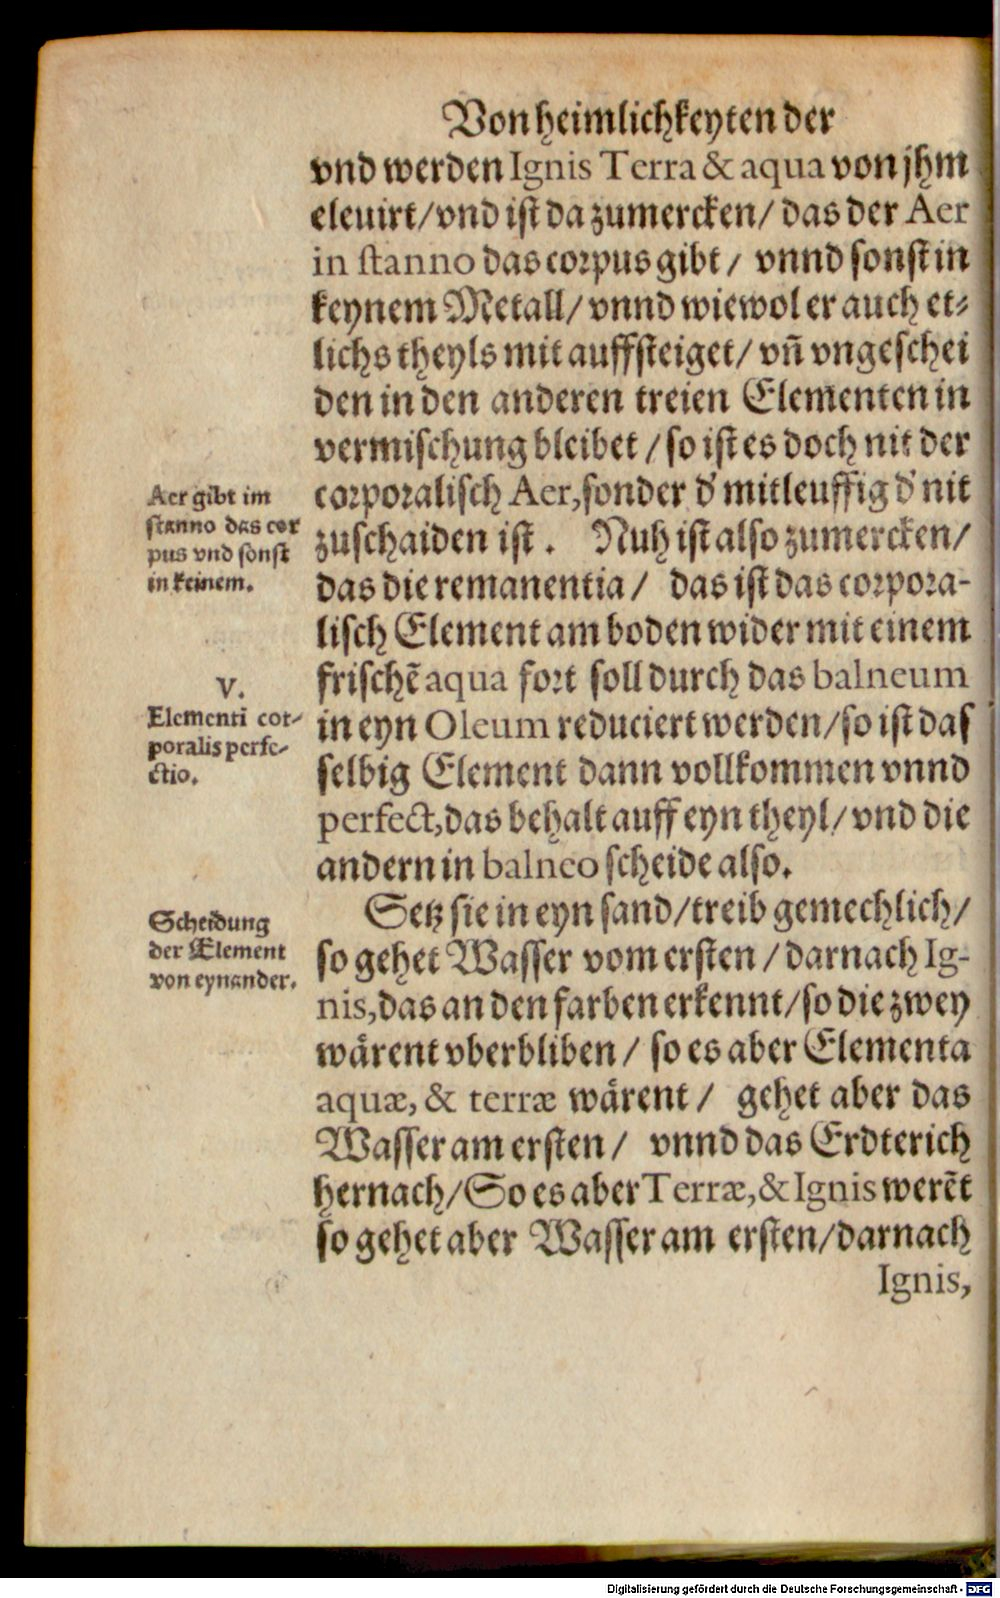 Von heimlichkeyten der
vnd werden Ignis Terra & aqua von jhm
eleuirt/vnd ist da zumercken/ das der Aer
in stanno das corpus gibt/ vnnd sonst in
keynem Metall/ vnnd wiewol er auch et⸗
lichs theyls mit auffsteiget/ vñ vngeschei
den in den anderen treien Elementen in
vermischung bleibet/ so ist es doch nit der
corporalisch Aer,sonder d' mitleuffig d' nit
zuschaiden ist. Nuh ist also zumercken/
das die remanentia/ das ist das corpora-
lisch Element am boden wider mit einem
frischẽ aqua fort soll durch das balneum
in eyn Oleum reduciert werden/so ist das
selbig Element dann vollkommen vnnd
perfect,das behalt auff eyn theyl/vnd die
andern in balneo scheide also.
Setz sie in eyn sand/treib gemechlich/
so gehet Wasser vom ersten/darnach Ig-
nis,das an den farben erkennt/so die zwey
wärent vberbliben/ so es aber Elementa
aquæ, & terræ wärent/ gehet aber das
Wasser am ersten/ vnnd das Erdterich
hernach/So es aber Terræ,& Ignis werẽt
so gehet aber Wasser am ersten/darnach
Ignis,
Aer gibt im
stanno das cor
pus vnd sonst
in keinem.
V.
Elementi cor⸗
poralis perfe⸗
ctio.
Scheidung
der Element
von eynander.
Digitalisierung gefördert durch die Deutsche Forschungsgemeinschaft - DFG